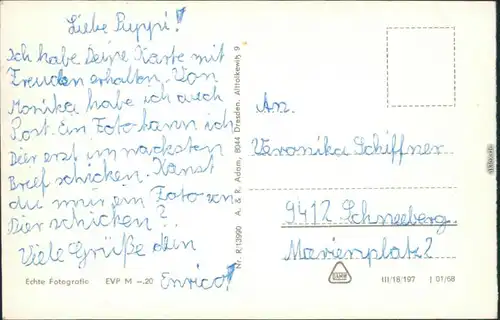 Liebe Puppi!
Ich habe Deine Karte mit
Freuden erhalten. Von
Monika habe ich auch
Post. Ein Foto kann ich
Dier erst im nächsten
Brief schicken. Kanst
du mir ein Foto von
Dier schicken?
Viele Grüße dein
Enrico!
Echte Fotografie EVP M –.20
Nr. R/13990 A. & R. Adam, 8044 Dresden, Alttolkewitz 9
An
Veronika Schiffner
9412 Schneeberg
Marienplatz 2
III/18/197 J 01/68